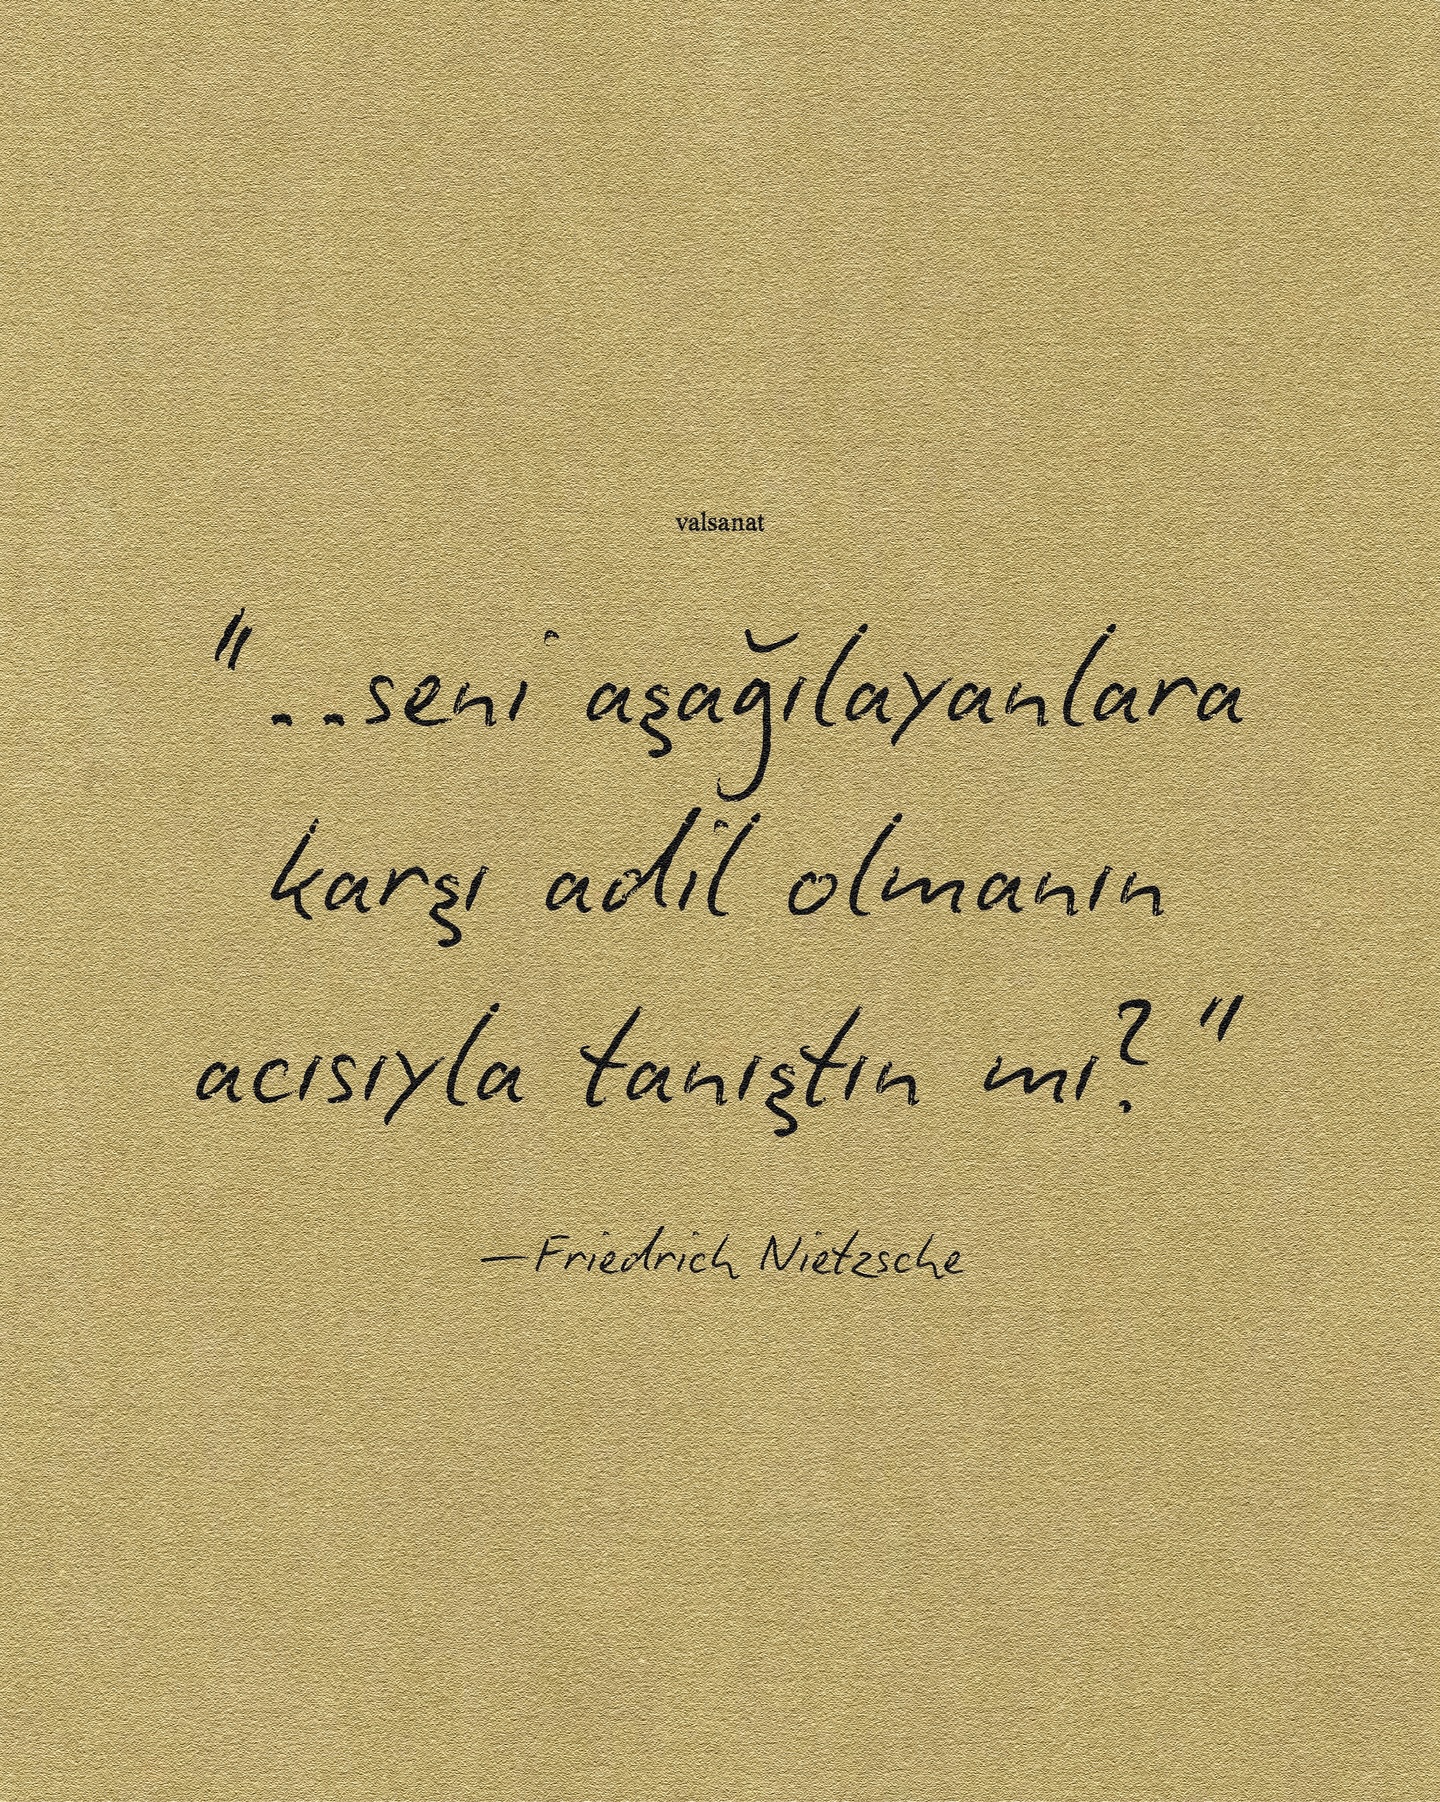 valsanat
"..seni aşağılayanlara
karşı adil olmanın
acısıyla tanıştın mı?"
—Friedrich Nietzsche